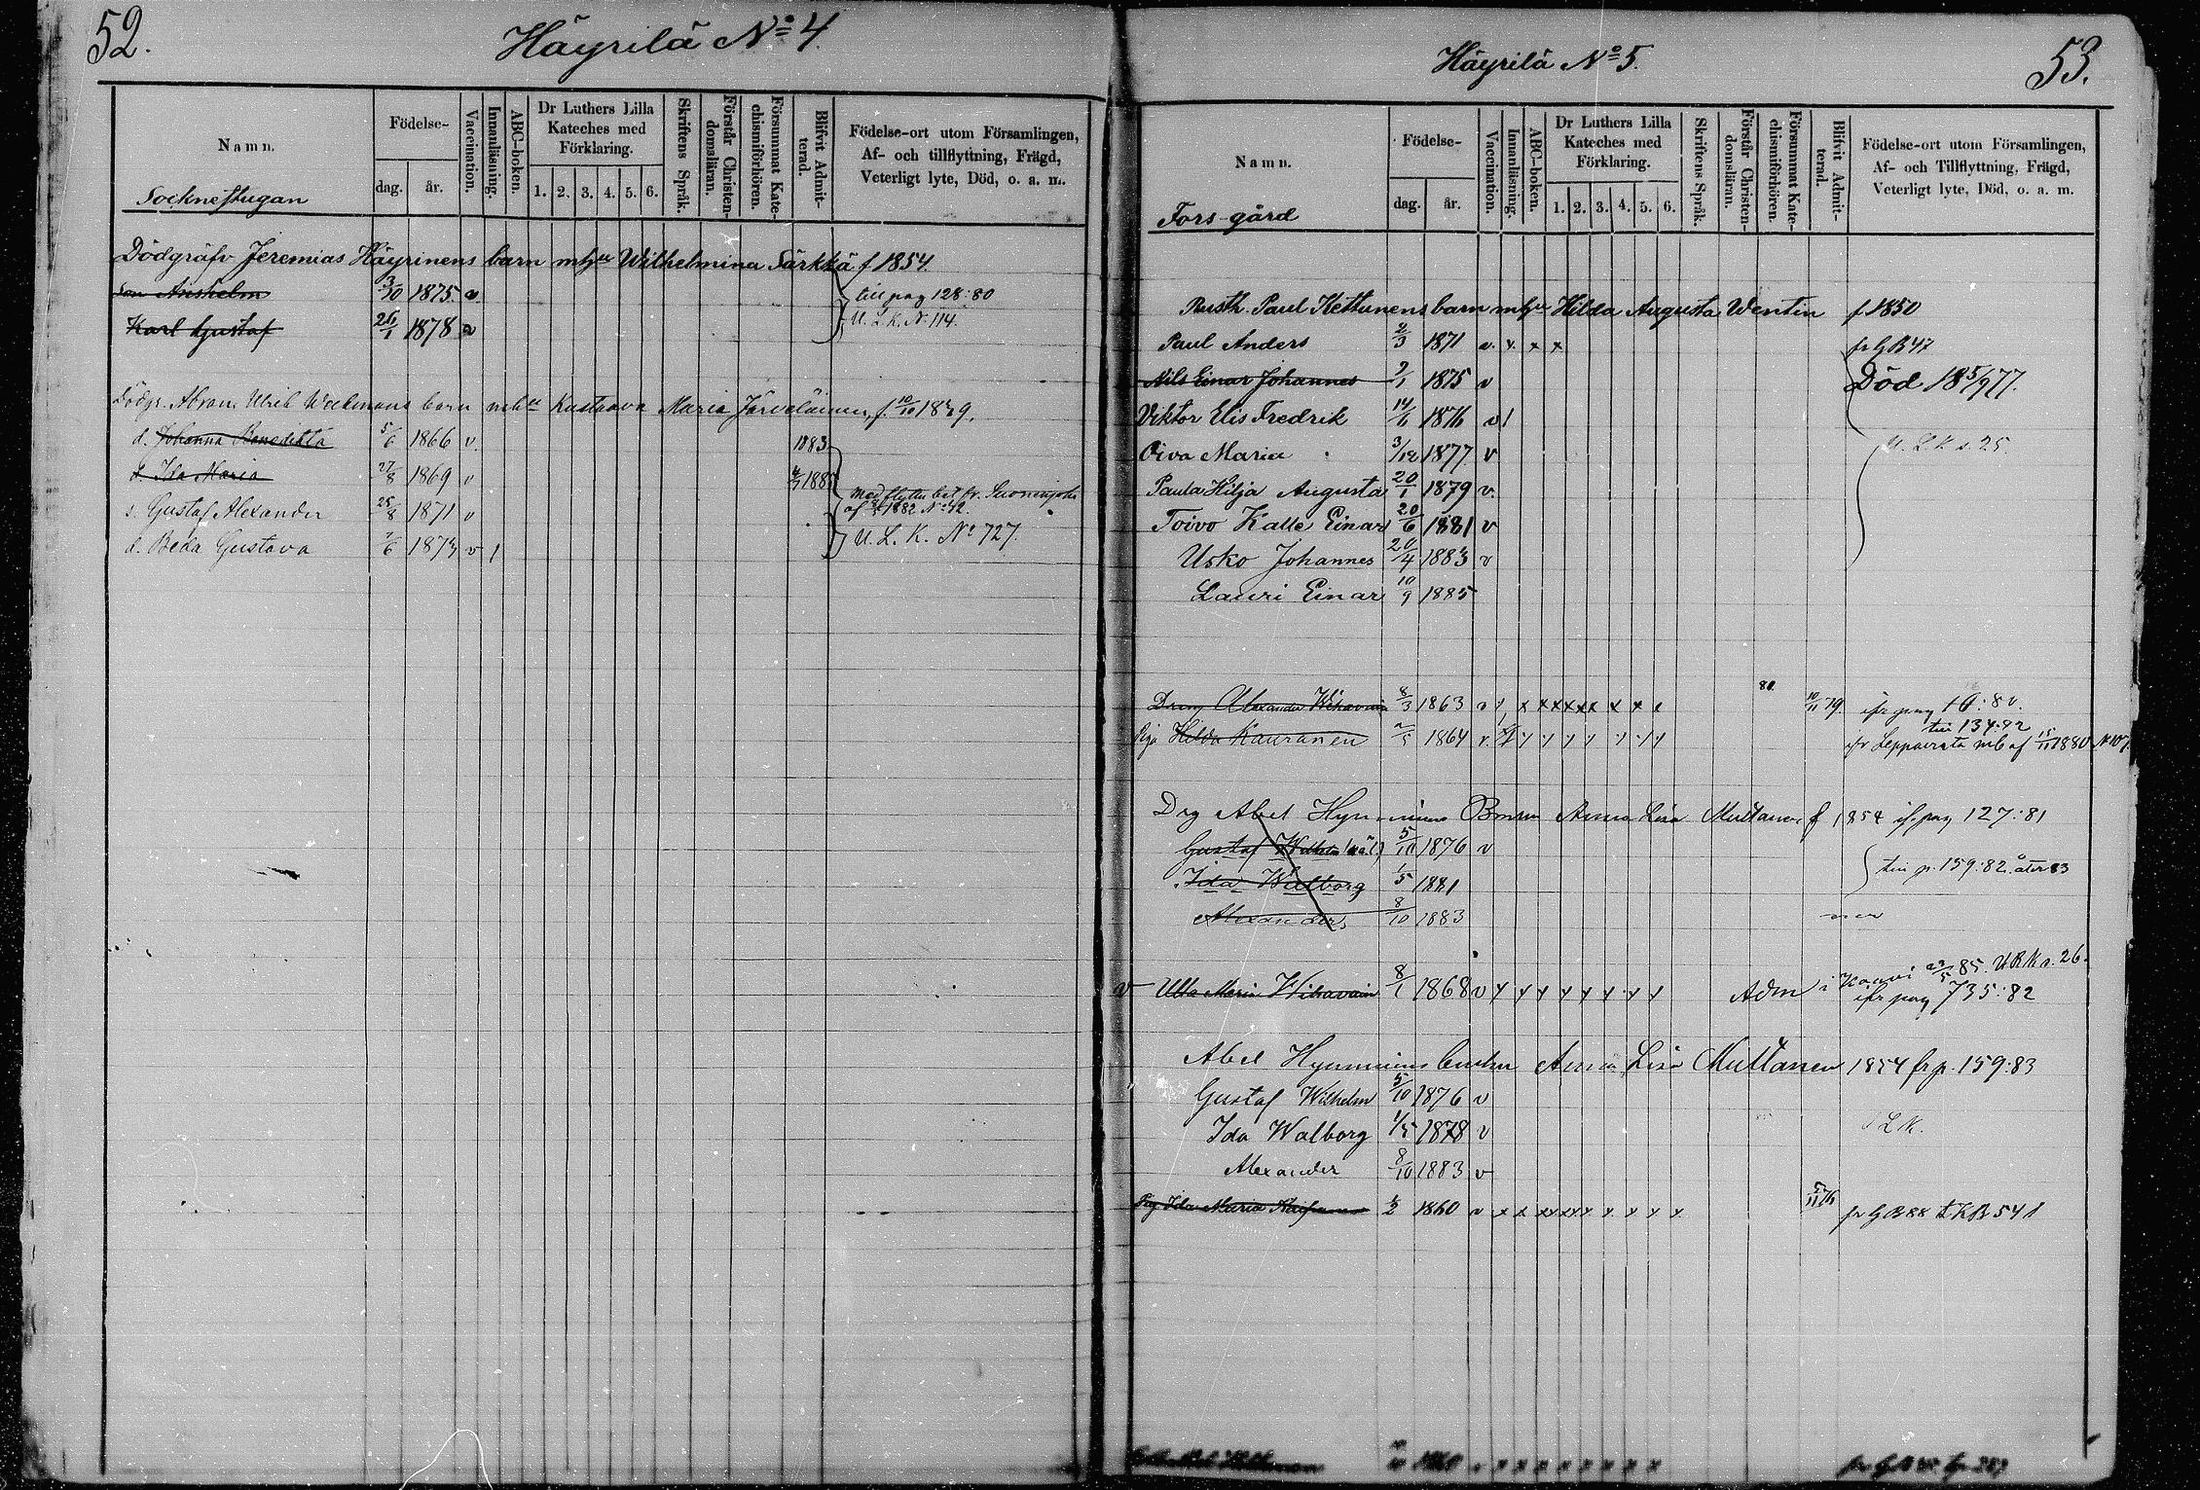 52.
Häyrilä No 4.
Namn.
Födelse-
dag.
år.
Vaccination.
Innanläsning.
ABC-boken.
Dr Luthers Lilla Kateches med Förklaring.
1. 2. 3. 4. 5. 6.
Skriftens Språk.
Förstår Christendomsläran.
Försummat Katechismiförhören.
Blifvit Admitterad.
Födelse-ort utom Församlingen, Af- och tillflyttning, Frägd, Veterligt lyte, Död, o. a. m.
Socknestugan
Dödgräfv Jeremias Häyrinens barn m hu Wilhelmina Särkkä f 1854.
Son Anshelm 3/10 1875 v till pag 128:80
Karl Gustaf 26/1 1878 v U. L. K. N. 114.
Dödgr. Abram Ulrik Weckmans barn m hu Kustaava Maria Järveläinen, f. 10/10 1839.
d. Johanna Benedikta 5/6 1866 v. 1883
d. Ida Maria 27/8 1869 v 1885 Med flytte bet. fr. Suonenjoki
s. Gustaf Alexander 25/8 1871 v af 1882 No 42.
d. Beda Gustava 7/6 1873 v 1 U. L. K. No 727.
53.
Häyrilä No 5.
Namn.
Födelse-
dag.
år.
Vaccination.
Innanläsning.
ABC-boken.
Dr Luthers Lilla Kateches med Förklaring.
1. 2. 3. 4. 5. 6.
Skriftens Språk.
Förstår Christendomsläran.
Försummat Katechismiförhören.
Blifvit Admitterad.
Födelse-ort utom Församlingen, Af- och Tillflyttning, Frägd, Veterligt lyte, Död, o. a. m.
Fors gård
Rusth. Paul Kettunens barn m hu Hilda Augusta Wentin f 1850
Paul Anders 2/3 1871 v. x. x x fr GB 47
Nils Einar Johannes 9/1 1875 v Död 18 5/9 77.
Viktor Elis Fredrik 14/6 1876 v 1
Oiva Maria 3/12 1877 v U. L. K. s. 25.
Paula Hilja Augusta 20/1 1879 v.
Toivo Kalle Einar 20/6 1881 v
Usko Johannes 20/4 1883 v
Lauri Einar 10/9 1885
80.
Dreng Alexander Wihavain 8/3 1863 v x x x x x x x x x 10/11 79. ifr pag 19:80.
till 134:82
Piga Hilda Kauranen 2/5 1864 v. x x x x x x x x ifr Leppävirta mb af 15/11 1880 N 107.
Drg Abel Hynninens Barn Anna Lisa Muttanen f 1854 if. pag 127:81
Gustaf Wilhelm 5/10 1876 v
Ida Walborg 1/5 1881 till p. 159:82. åter 83
Alexander 8/10 1883
v Ulla Maria Wihavain 8/1 1868 v x x x x x x x x Adm i 85. s. 26.
ifr pag 735:82
Abel Hynninens Anna Lisa Muttanen 1854 fr p. 159:83
Gustaf Wilhelm 5/10 1876 v
Ida Walborg 1/5 1878 v L K.
Alexander 8/10 1883 v
Pig Ida Maria 1860 v x x x x x x x x x 76 fr GB 88 t KB 541